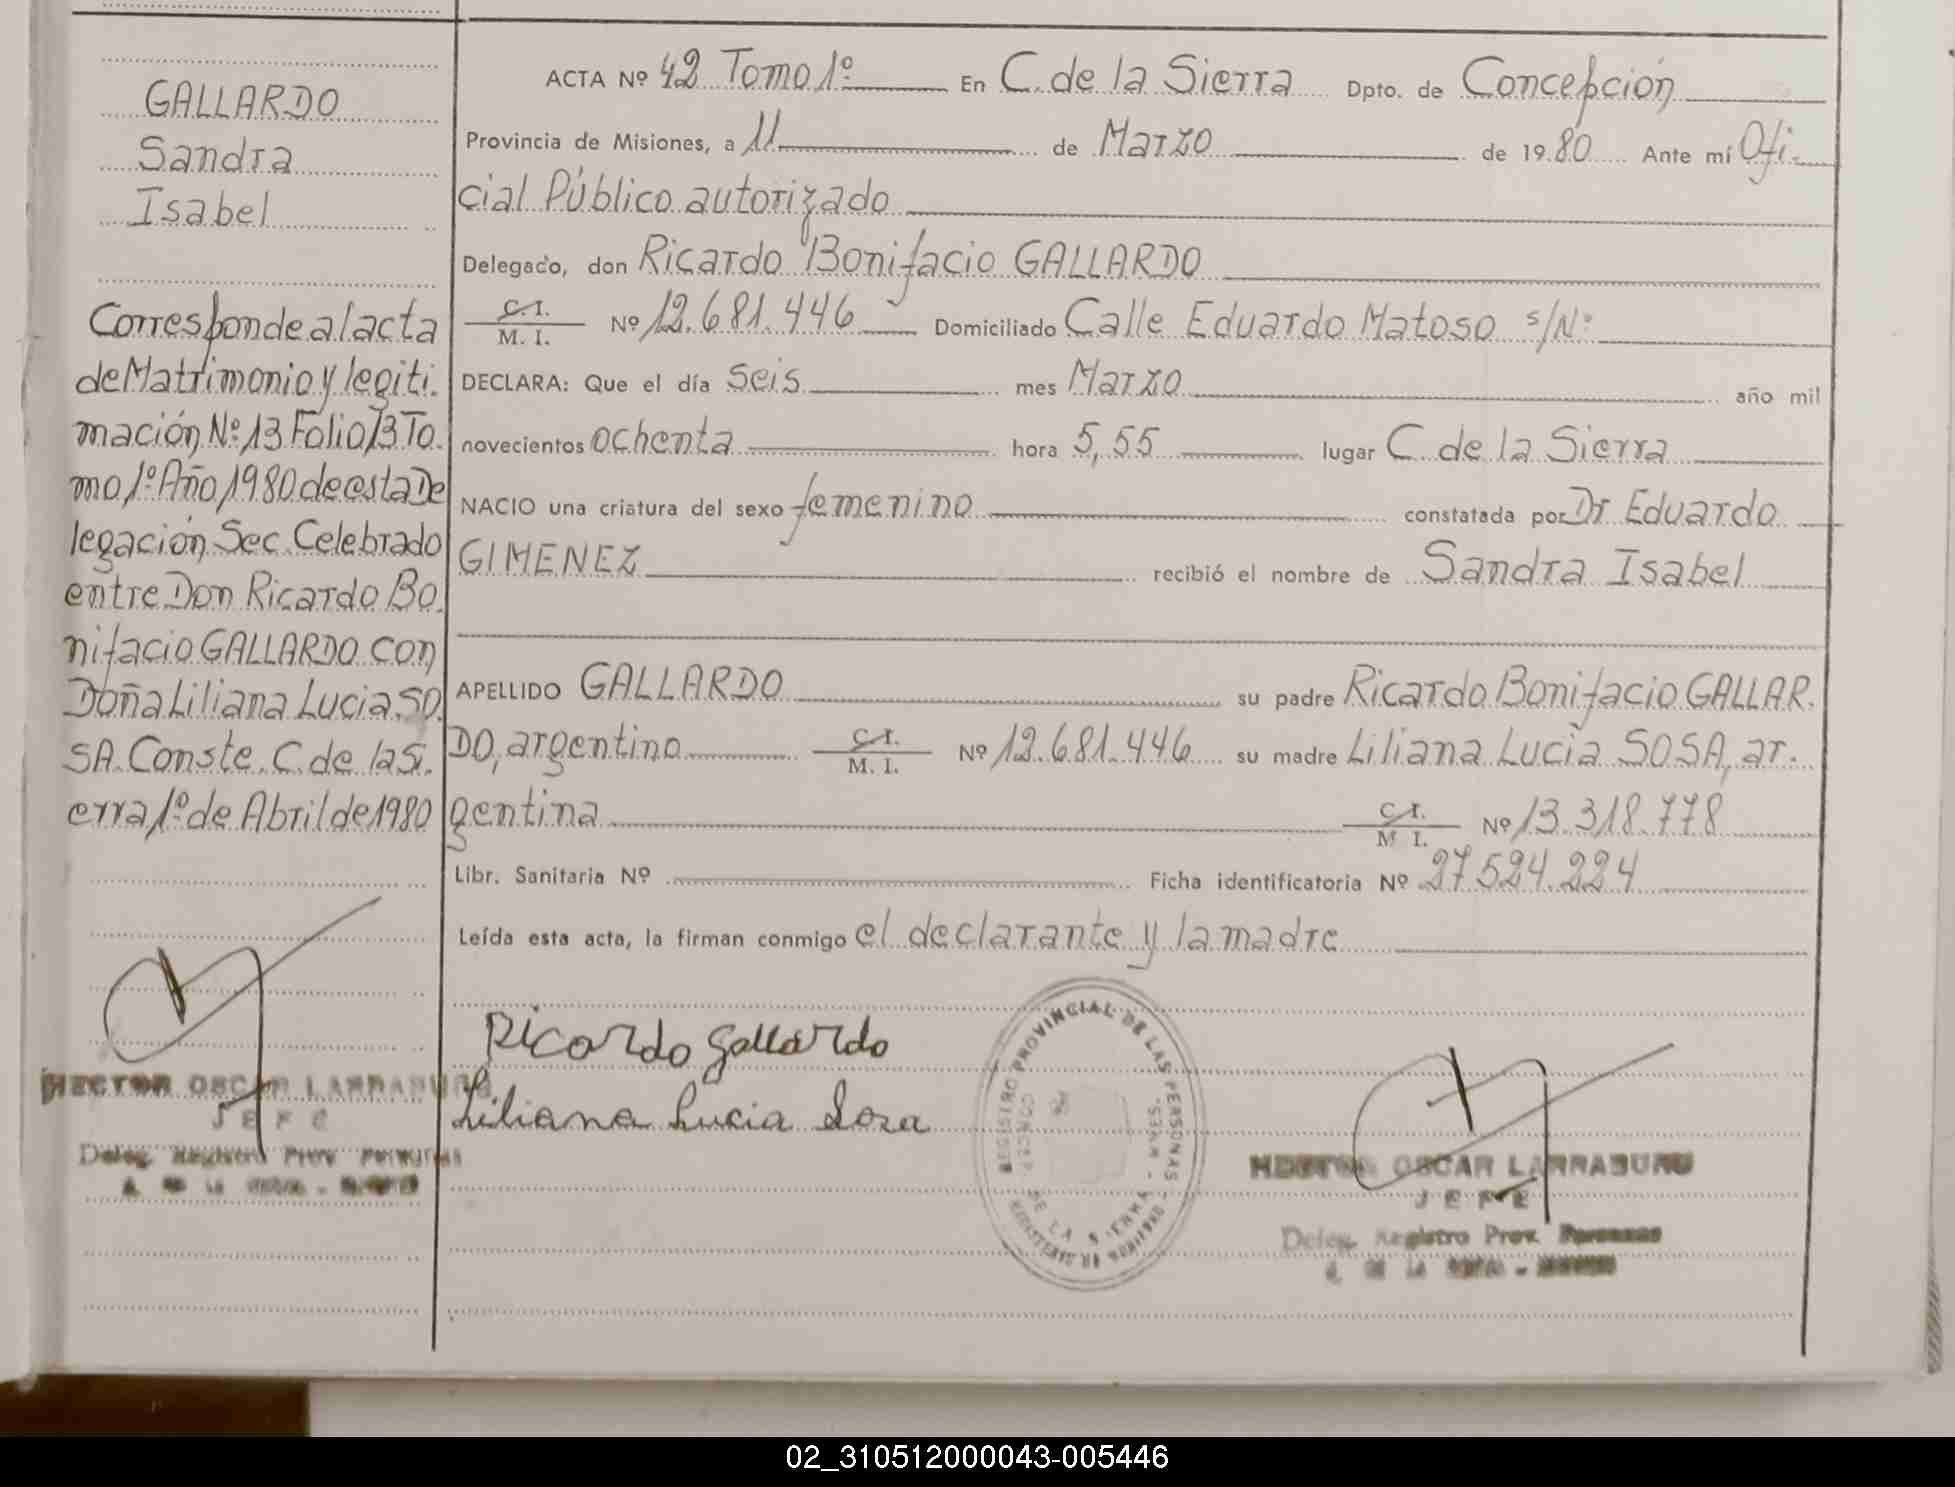 GALLARDO
Sandra
Isabel
Corresponde al acta
de Matrimonio y legiti.
mación Nº 13 Folio 13 To.
mo 1º Año 1980 de esta De
legación Sec. Celebrado
entre Don Ricardo Bo.
nifacio GALLARDO con
Doña Liliana Lucia SO.
SA. Conste. C. de la Si.
erra 1º de Abril de 1980
HECTOR OSCAR LARRABURU
JEFE
Deleg. Registro Prov. Personas
ACTA Nº 42 Tomo 1º En C. de la Sierra Dpto. de Concepción
Provincia de Misiones, a 11 de Marzo de 1980 Ante mí Ofi.
cial Público autorizado
Delegado, don Ricardo Bonifacio GALLARDO
C.I.
M. I. Nº 12.681.446 Domiciliado Calle Eduardo Matoso s/Nº
DECLARA: Que el día seis mes Marzo año mil
novecientos ochenta hora 5,55 lugar C. de la Sierra
NACIO una criatura del sexo femenino constatada por Dr Eduardo
GIMENEZ recibió el nombre de Sandra Isabel
APELLIDO GALLARDO su padre Ricardo Bonifacio GALLAR.
DO, argentino C.I. M. I. Nº 12.681.446 su madre Liliana Lucia SOSA, ar.
gentina C.I. M I. Nº 13.318.778
Libr. Sanitaria Nº Ficha identificatoria Nº 27.524.224
Leída esta acta, la firman conmigo el declarante y la madre
Ricardo Gallardo
Liliana Lucia Sosa
REGISTRO PROVINCIAL DE LAS PERSONAS
CONCEP. DE LA SIERRA - MNES.
HECTOR OSCAR LARRABURU
JEFE
Deleg. Registro Prov. Personas
02_310512000043-005446